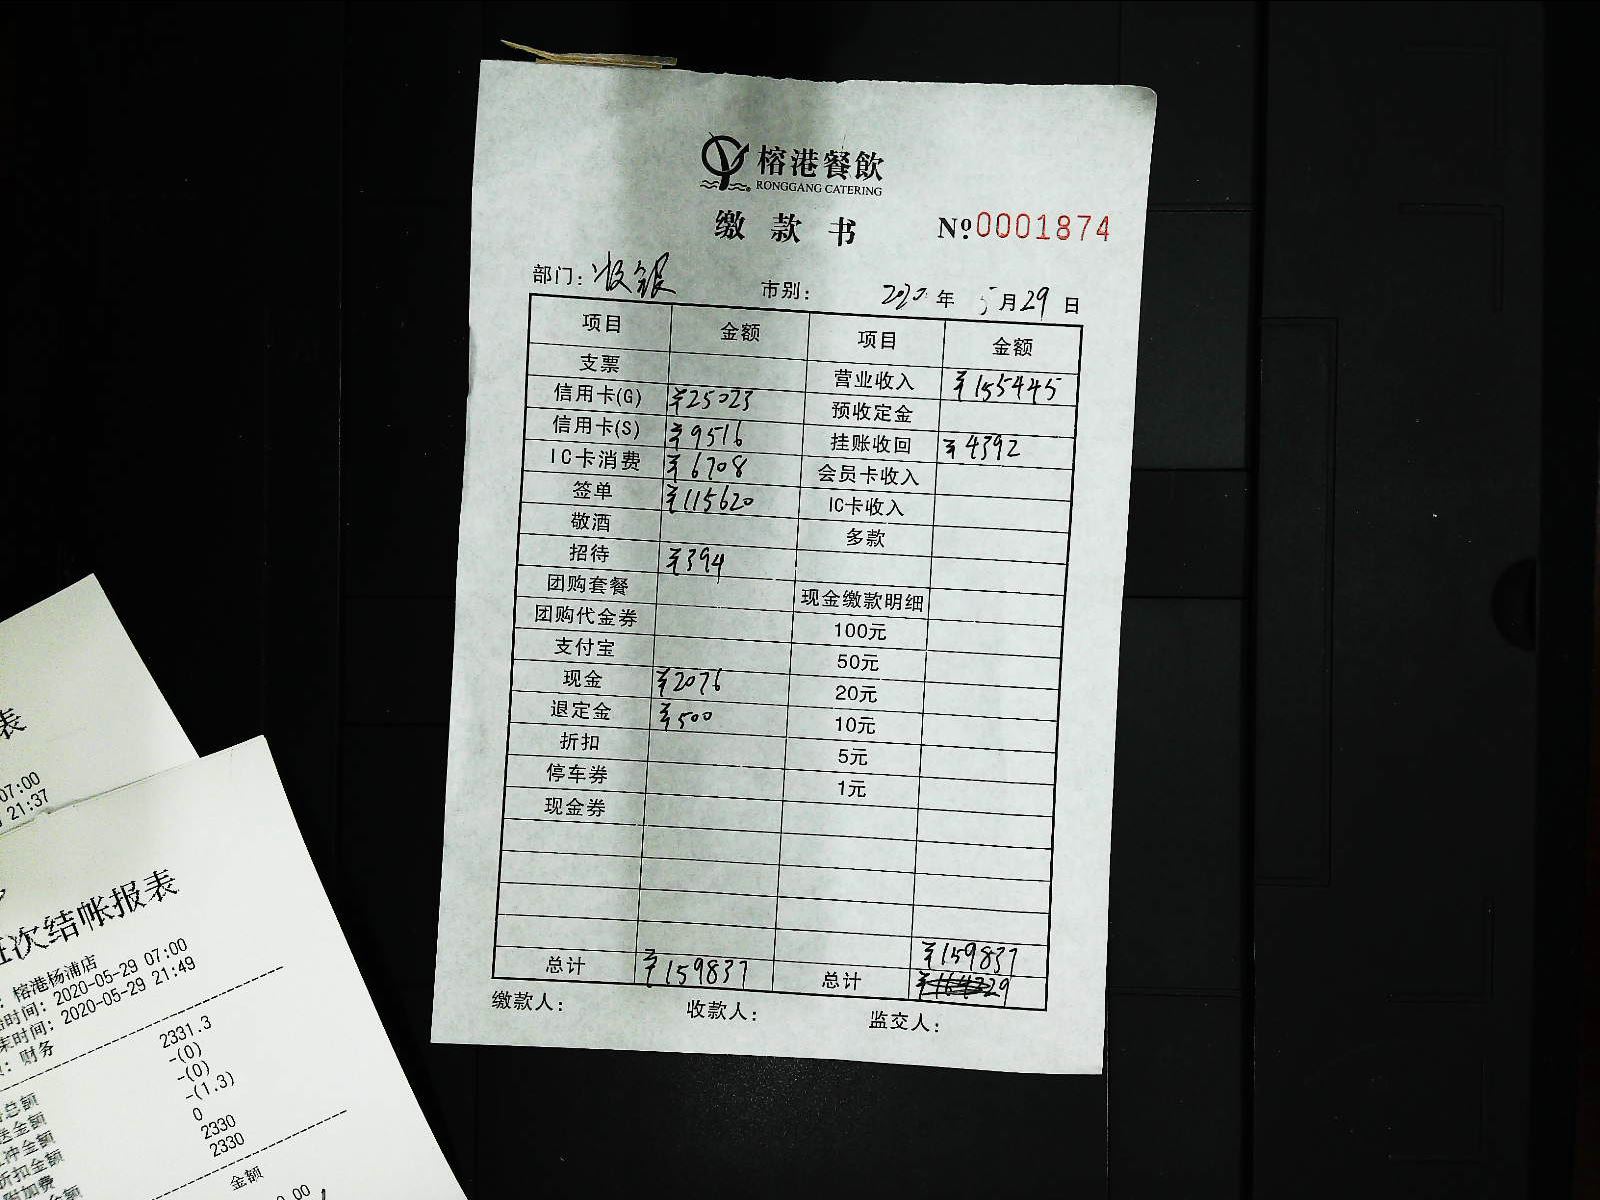 榕港餐飲
RONGGANG CATERING
缴款书 №0001874
部门: 收银 市别: 2020年 5月29日
项目 金额 项目 金额
支票 营业收入 ¥155445
信用卡(G) ¥25023 预收定金
信用卡(S) ¥9516 挂账收回 ¥4392
IC卡消费 ¥6708 会员卡收入
签单 ¥115620 IC卡收入
敬酒 多款
招待 ¥394
团购套餐 现金缴款明细
团购代金券 100元
支付宝 50元
现金 ¥2076 20元
退定金 ¥500 10元
折扣 5元
停车券 1元
现金券
¥159837
总计 ¥159837 总计
缴款人: 收款人: 监交人:
表
07:00
21:37
班次结帐报表
: 榕港杨浦店
时间: 2020-05-29 07:00
束时间: 2020-05-29 21:49
: 财务
总额 2331.3
送金额 -(0)
冲金额 -(0)
折扣金额 -(1.3)
附加费 0
金额 2330
2330
金额